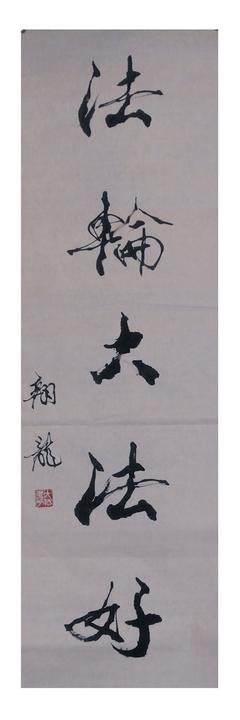 法輪大法好
翔龍